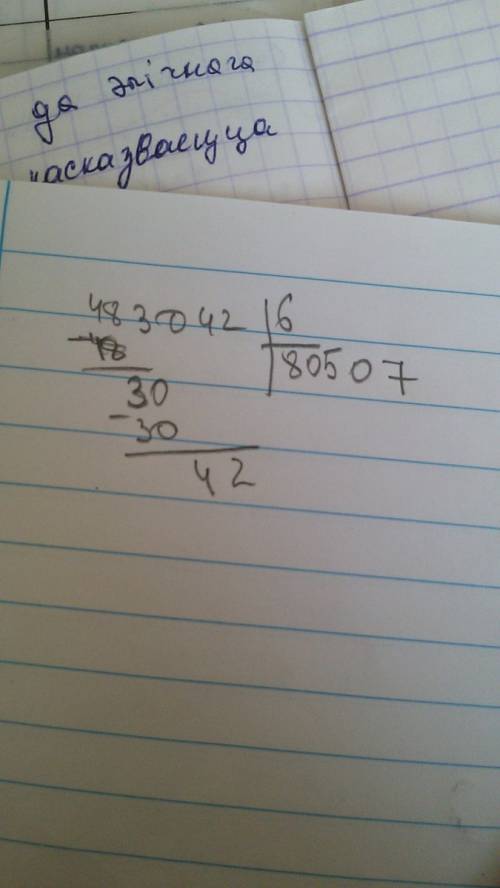 да эпічнага
расказваецца
483042 | 6
- 48 | 80507
30
- 30
42